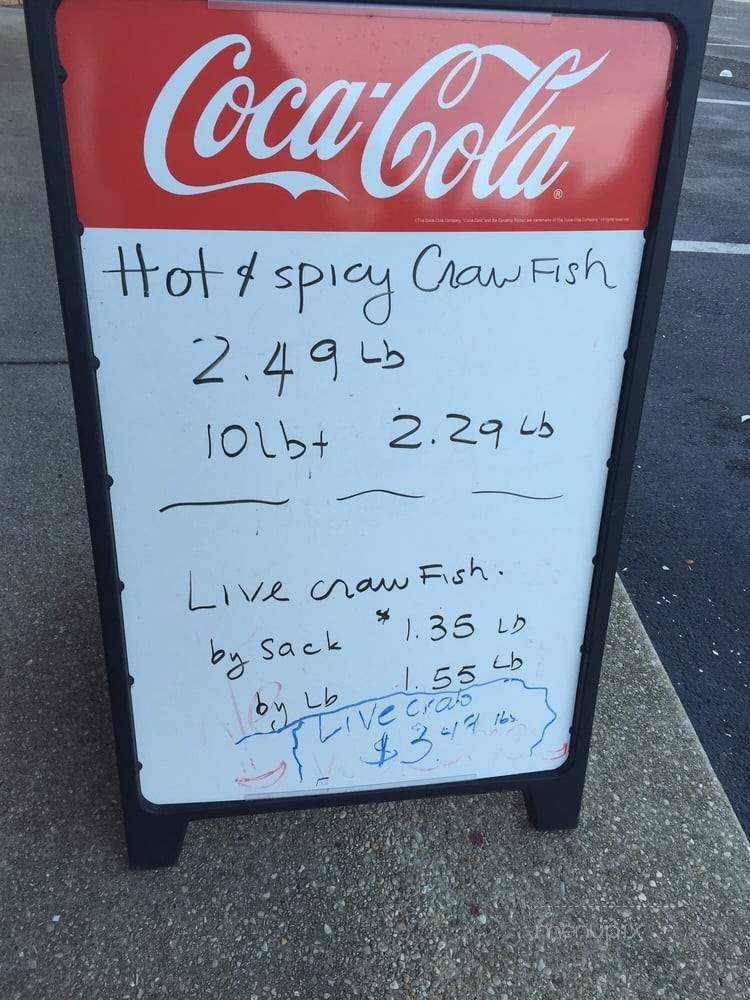 Coca-Cola
Hot & spicy CrawFish
2.49 Lb
10lb+ 2.29 Lb
Live crawFish.
by Sack 1.35 Lb
by Lb 1.55 Lb
Live crab
$3.49 lbs
menupix